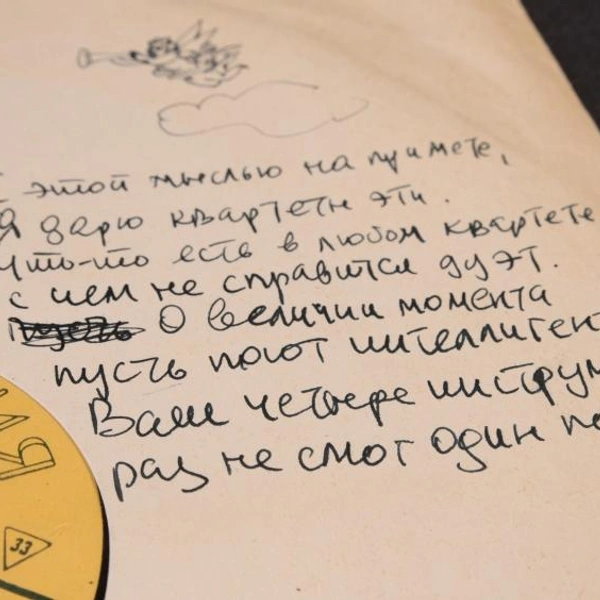 этой мыслью на примете,
Я дарю квартеты эти.
Что-то есть в любом квартете
с чем не справится дуэт.
О величии момента
пусть поют интеллигент
Вам четыре инструм
раз не смог один по
33